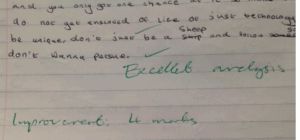 and you only get one chance at it
do not get enslaved of like or just technology
be unique, don't just be a Sheep and follow
don't wanna pursue.
Excellet analysis
Improvement: 4 marks